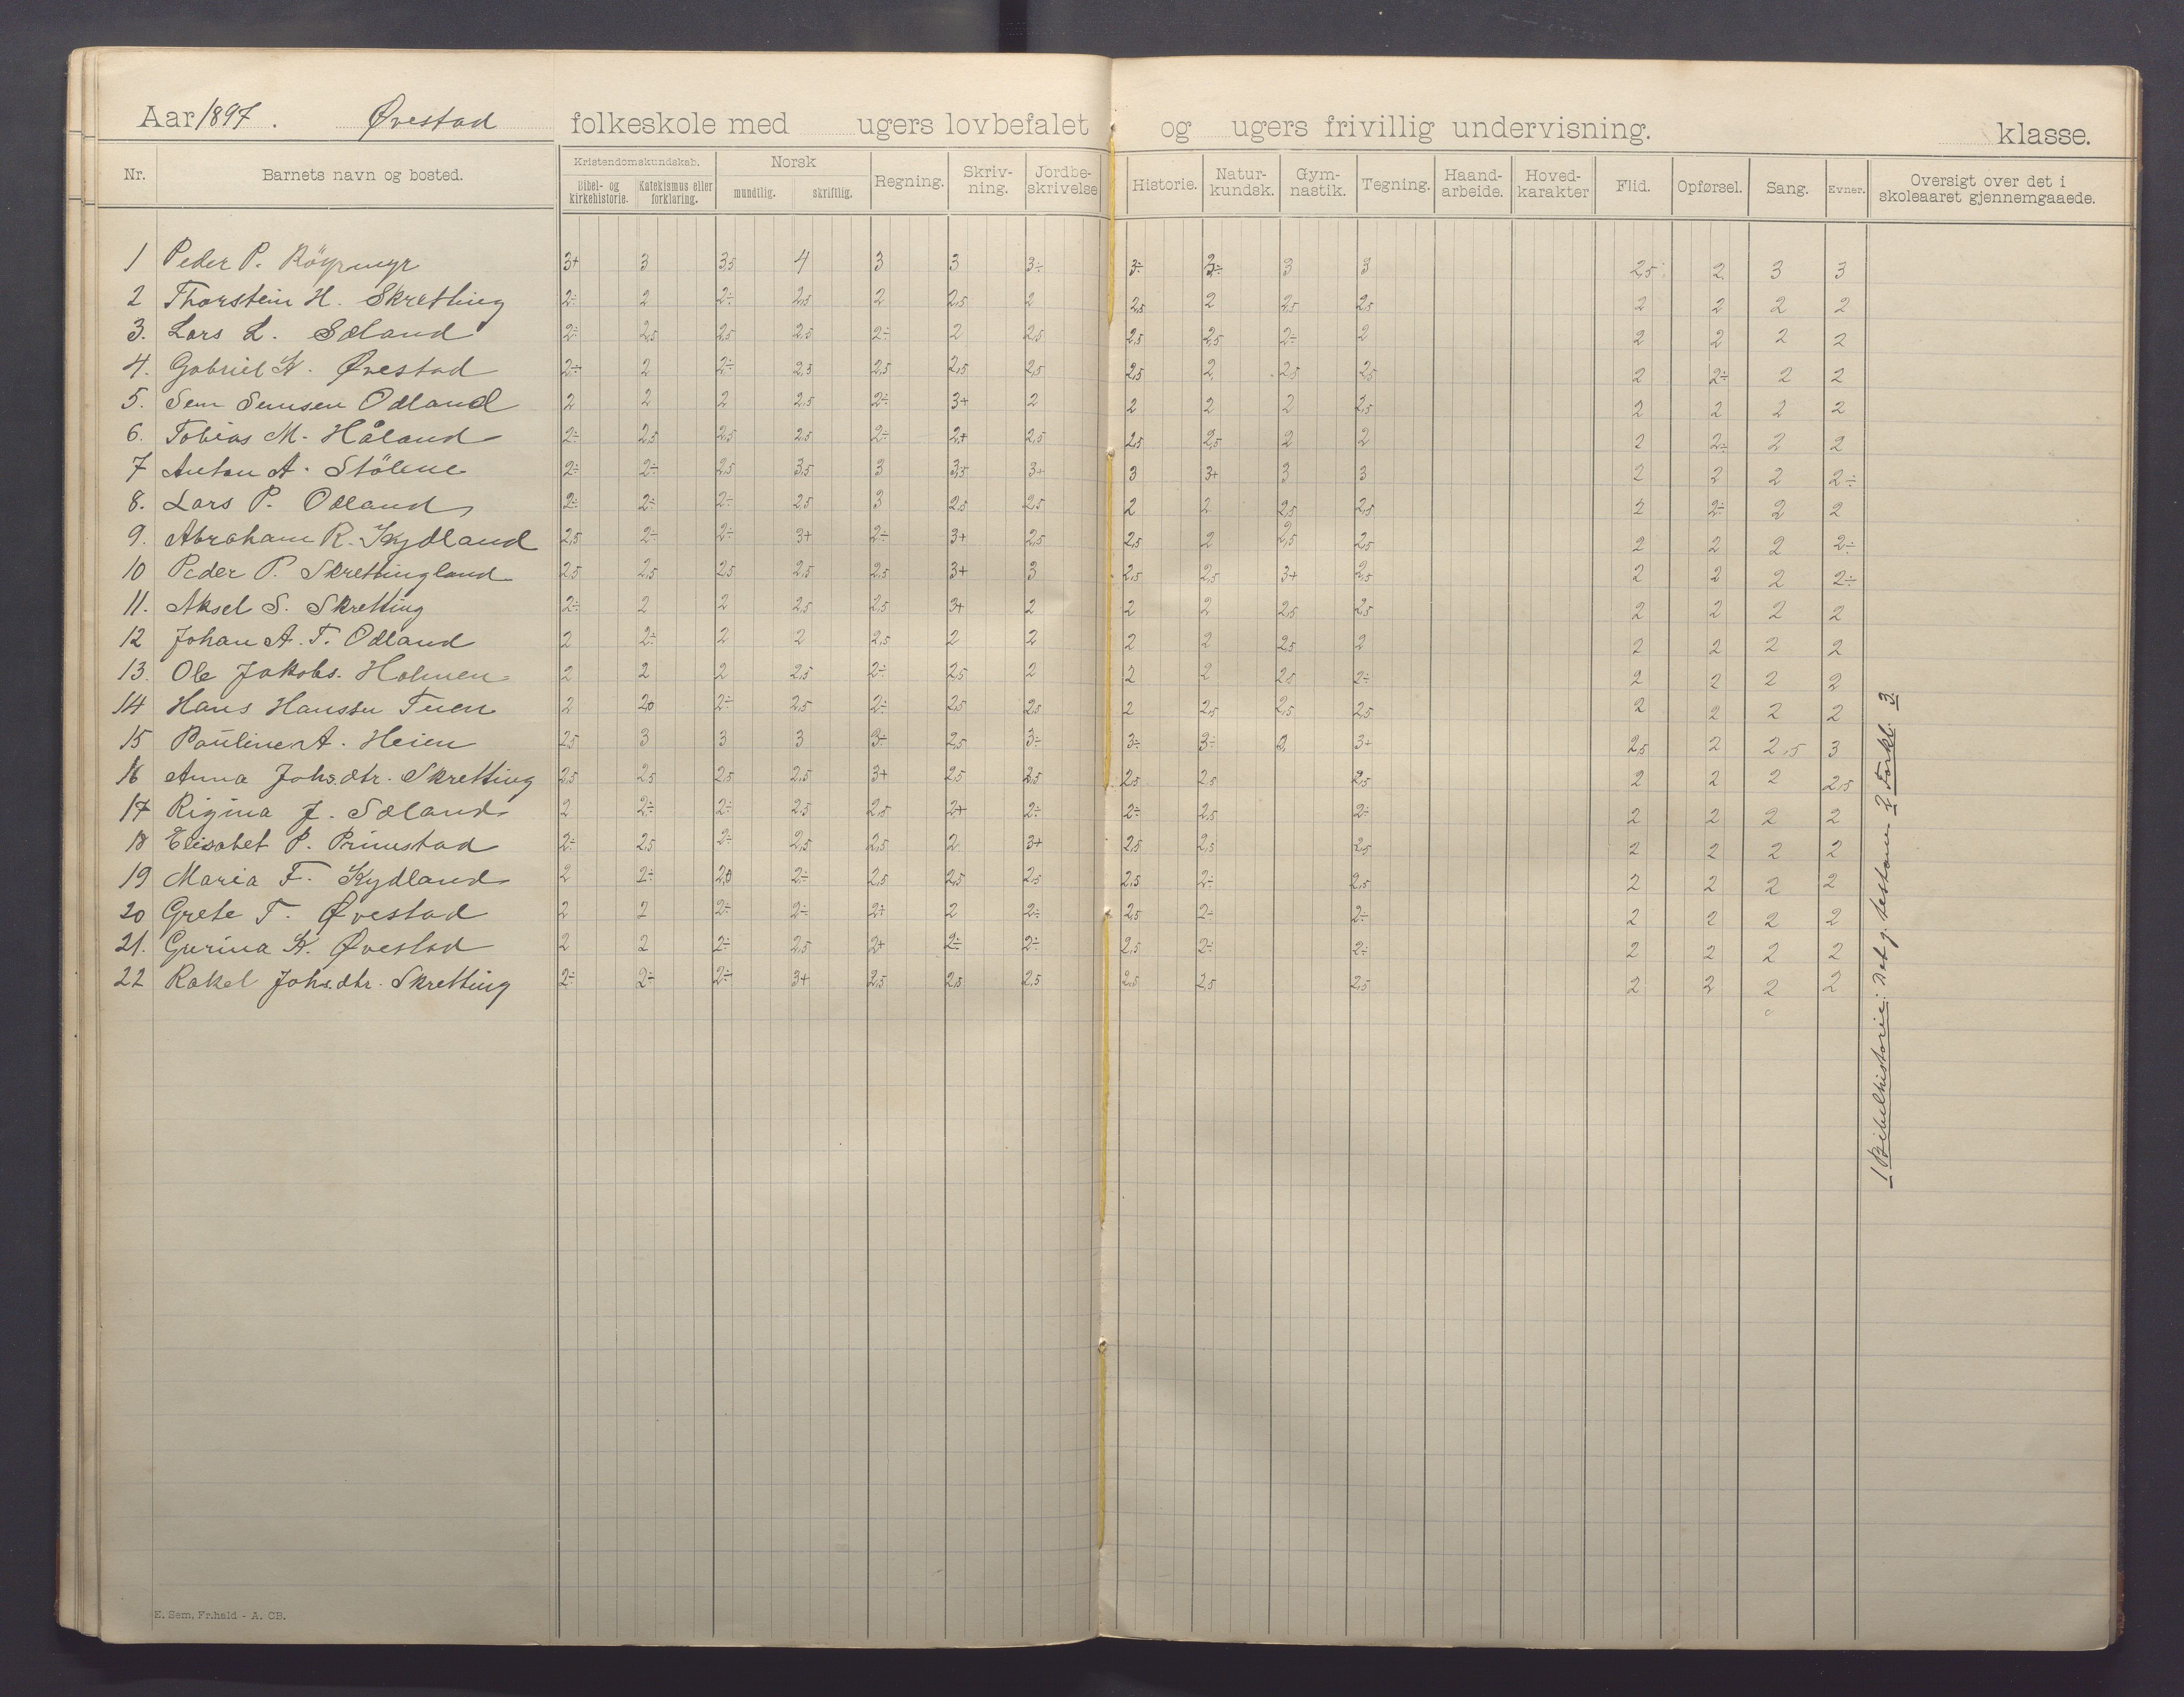 Aar 1897. Øvestad folkeskole med ugers lovbefalet og ugers frivillig undervisning. klasse.
Nr. Barnets navn og bosted. Kristendomskundskab. Bibel- og kirkehistorie. Katekismus eller forklaring. Norsk mundtlig. skriftlig. Regning. Skriv-ning. Jordbe-skrivelse Historie. Natur-kundsk. Gym-nastik. Tegning. Haand-arbeide. Hoved-karakter Flid. Opførsel. Sang. Evner. Oversigt over det i skoleaaret gjennemgaaede.
1 Peder P. Röyrmyr 3+ 3 3,5 4 3 3 3÷ 3÷ 3÷ 3 3 2,5 2 3 3
2 Thorstein H. Skretting 2÷ 2 2÷ 2,5 2 2,5 2 2,5 2 2,5 2,5 2 2 2 2
3. Lars L. Söland 2÷ 2,5 2,5 2,5 2÷ 2 2,5 2,5 2,5 2÷ 2 2 2 2 2
4. Gabriel K. Øvestad 2÷ 2 2÷ 2,5 2,5 2,5 2,5 2,5 2 2,5 2,5 2 2÷ 2 2
5. Sem Semsen Odland 2 2 2 2,5 2÷ 3+ 2 2 2 2 2,5 2 2 2 2
6. Tobias M. Håland 2÷ 2,5 2,5 2,5 2÷ 2+ 2,5 2,5 2,5 2 2 2 2÷ 2 2
7 Anton A. Stölene 2÷ 2÷ 2,5 3,5 3 3,5 3+ 3 3+ 3 3 2 2 2 2÷
8. Lars P. Odland 2÷ 2÷ 2÷ 2,5 3 2,5 2,5 2 2 2,5 2,5 2 2÷ 2 2
9. Abraham R. Kydland 2,5 2÷ 2÷ 3+ 2÷ 3+ 2,5 2,5 2 2,5 2,5 2 2 2 2÷
10 Peder P. Skrettingland 2,5 2,5 2,5 2,5 2,5 3+ 3 2,5 2,5 3+ 2,5 2 2 2 2÷
11. Aksel S. Skretting 2÷ 2 2 2,5 2,5 3+ 2 2 2 2,5 2,5 2 2 2 2
12 Johan A. T. Odland 2 2÷ 2 2 2,5 2 2 2 2 2,5 2 2 2 2 2
13. Ole Jakobs. Holmen 2 2 2 2,5 2÷ 2,5 2 2 2 2,5 2÷ 2 2 2 2
14 Hans Hanssen Tuen 2 20 2÷ 2,5 2÷ 2,5 2,5 2 2,5 2,5 2,5 2 2 2 2
15 Pauline A. Heien 2,5 3 3 3 3÷ 2,5 3÷ 3÷ 3÷ 2 3+ 2,5 2 2,5 3
16 Anna Johs.dtr. Skretting 2,5 2,5 2,5 2,5 3+ 2,5 2,5 2,5 2,5 2,5 2 2 2 2,5
17 Rigina J. Söland 2 2÷ 2÷ 2,5 2,5 2+ 2÷ 2÷ 2,5 2÷ 2 2 2 2
18 Elisabet P. Primstad 2÷ 2,5 2÷ 2,5 2,5 2 3+ 2,5 2,5 2,5 2 2 2 2
19 Maria F. Kydland 2 2÷ 2,0 2÷ 2,5 2,5 2,5 2,5 2÷ 2,5 2 2 2 2
20 Grete T. Øvestad 2 2 2÷ 2÷ 2+ 2 2÷ 2,5 2÷ 2÷ 2 2 2 2
21. Gurina K. Øvestad 2 2 2÷ 2,5 2+ 2÷ 2÷ 2,5 2÷ 2÷ 2 2 2 2
22 Rakel Johs.dtr. Skretting 2÷ 2÷ 2÷ 3+ 2,5 2,5 2,5 2,5 2,5 2,5 2 2 2 2
1 Bibelhistorie: Det g. testam. 2 Forkl. 3
E. Sem, Fr.hald - A. CB.